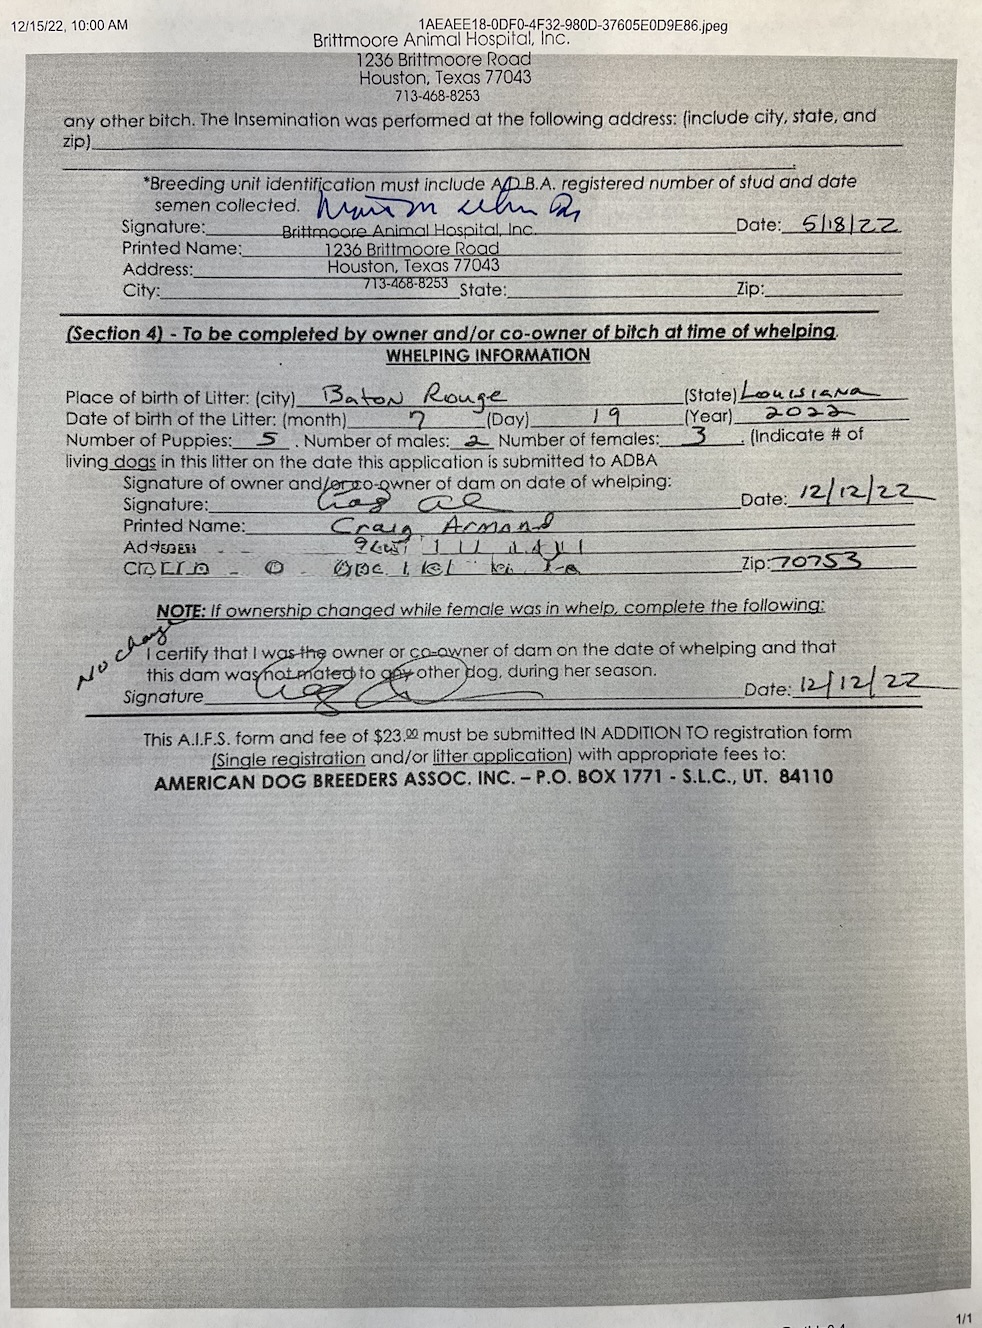 12/15/22, 10:00 AM 1AEAEE18-0DF0-4F32-980D-37605E0D9E86.jpeg
Brittmoore Animal Hospital, Inc.
1236 Brittmoore Road
Houston, Texas 77043
713-468-8253
any other bitch. The Insemination was performed at the following address: (include city, state, and
zip)
*Breeding unit identification must include A.D.B.A. registered number of stud and date
semen collected.
Signature: Brittmoore Animal Hospital, Inc. Date: 5/18/22
Printed Name: 1236 Brittmoore Road
Address: Houston, Texas 77043
City: 713-468-8253 State: Zip:
(Section 4) - To be completed by owner and/or co-owner of bitch at time of whelping.
WHELPING INFORMATION
Place of birth of Litter: (city) Baton Rouge (State) Louisiana
Date of birth of the Litter: (month) 7 (Day) 19 (Year) 2022
Number of Puppies: 5 . Number of males: 2 Number of females: 3 . (Indicate # of
living dogs in this litter on the date this application is submitted to ADBA
Signature of owner and/or co-owner of dam on date of whelping:
Signature: Date: 12/12/22
Printed Name: Craig Armand
Zip: 70753
NOTE: If ownership changed while female was in whelp, complete the following:
No change
I certify that I was the owner or co-owner of dam on the date of whelping and that
this dam was not mated to any other dog, during her season.
Signature Date: 12/12/22
This A.I.F.S. form and fee of $23.00 must be submitted IN ADDITION TO registration form
(Single registration and/or litter application) with appropriate fees to:
AMERICAN DOG BREEDERS ASSOC. INC. – P.O. BOX 1771 - S.L.C., UT. 84110
1/1